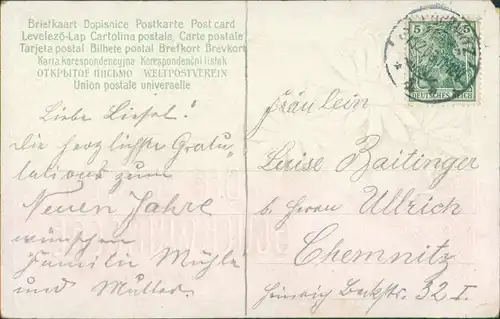 Briefkaart Dopisnice Postkarte Post card
Levelező-Lap Cartolina postala Carte postale
Tarjeta postal Bilhete postal Brefkort Brevkort
Karta korespondencyjna Korespondenční listek
ОТКРЫТОЕ ПИСЬМО WELTPOSTVEREIN
Union postale universelle
5 5
DEUTSCHES REICH
Liebe Liesel!
Die herzlichste Gratu-
lations zum
Neuen Jahre
wünschen
Familie Mühle
und Mutter.
Fräulein
Luise Baitinger
b. Herrn Ullrich
Chemnitz
Heinrich Beckstr. 32 I.